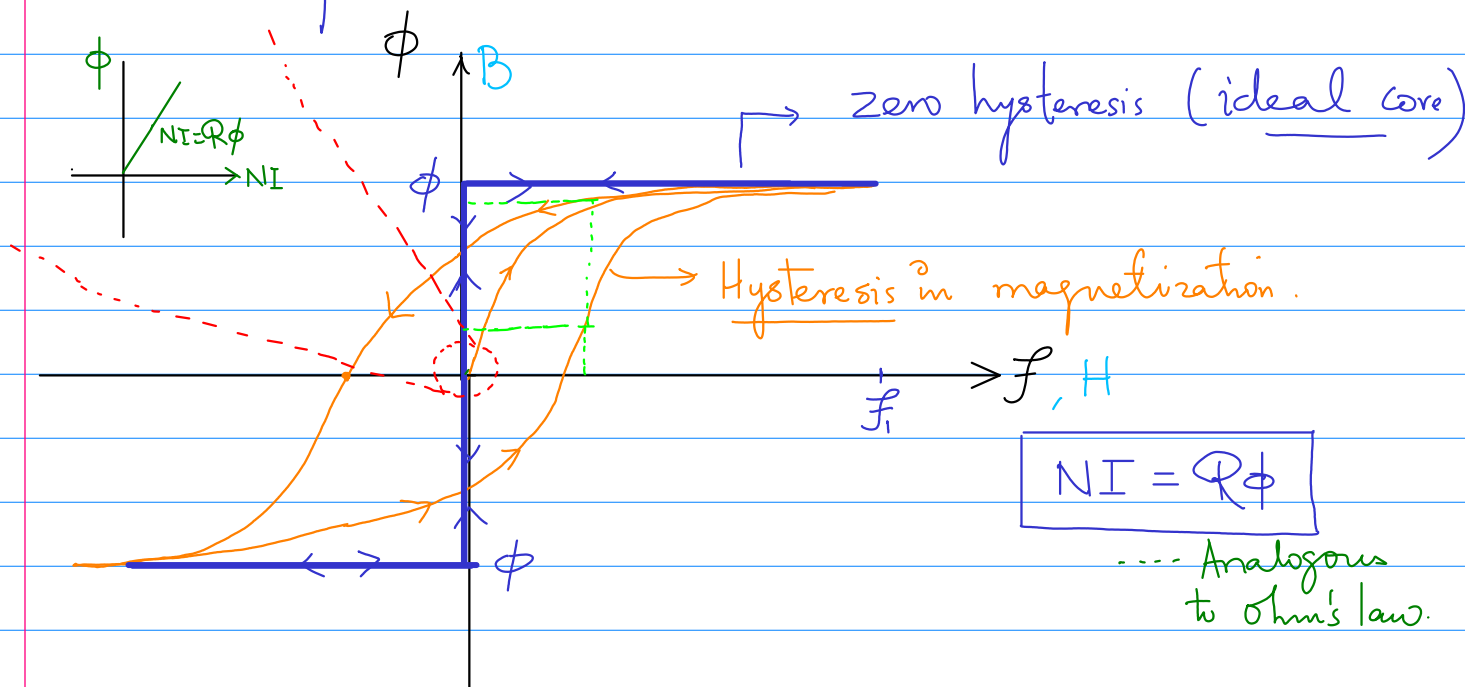 ϕ
ϕ
B
zero hysteresis (ideal core)
NI=ℛϕ
NI
ϕ
Hysteresis in magnetization.
ℱ, H
ℱ₁
NI = ℛϕ
ϕ
.... Analogous
to Ohm's law.